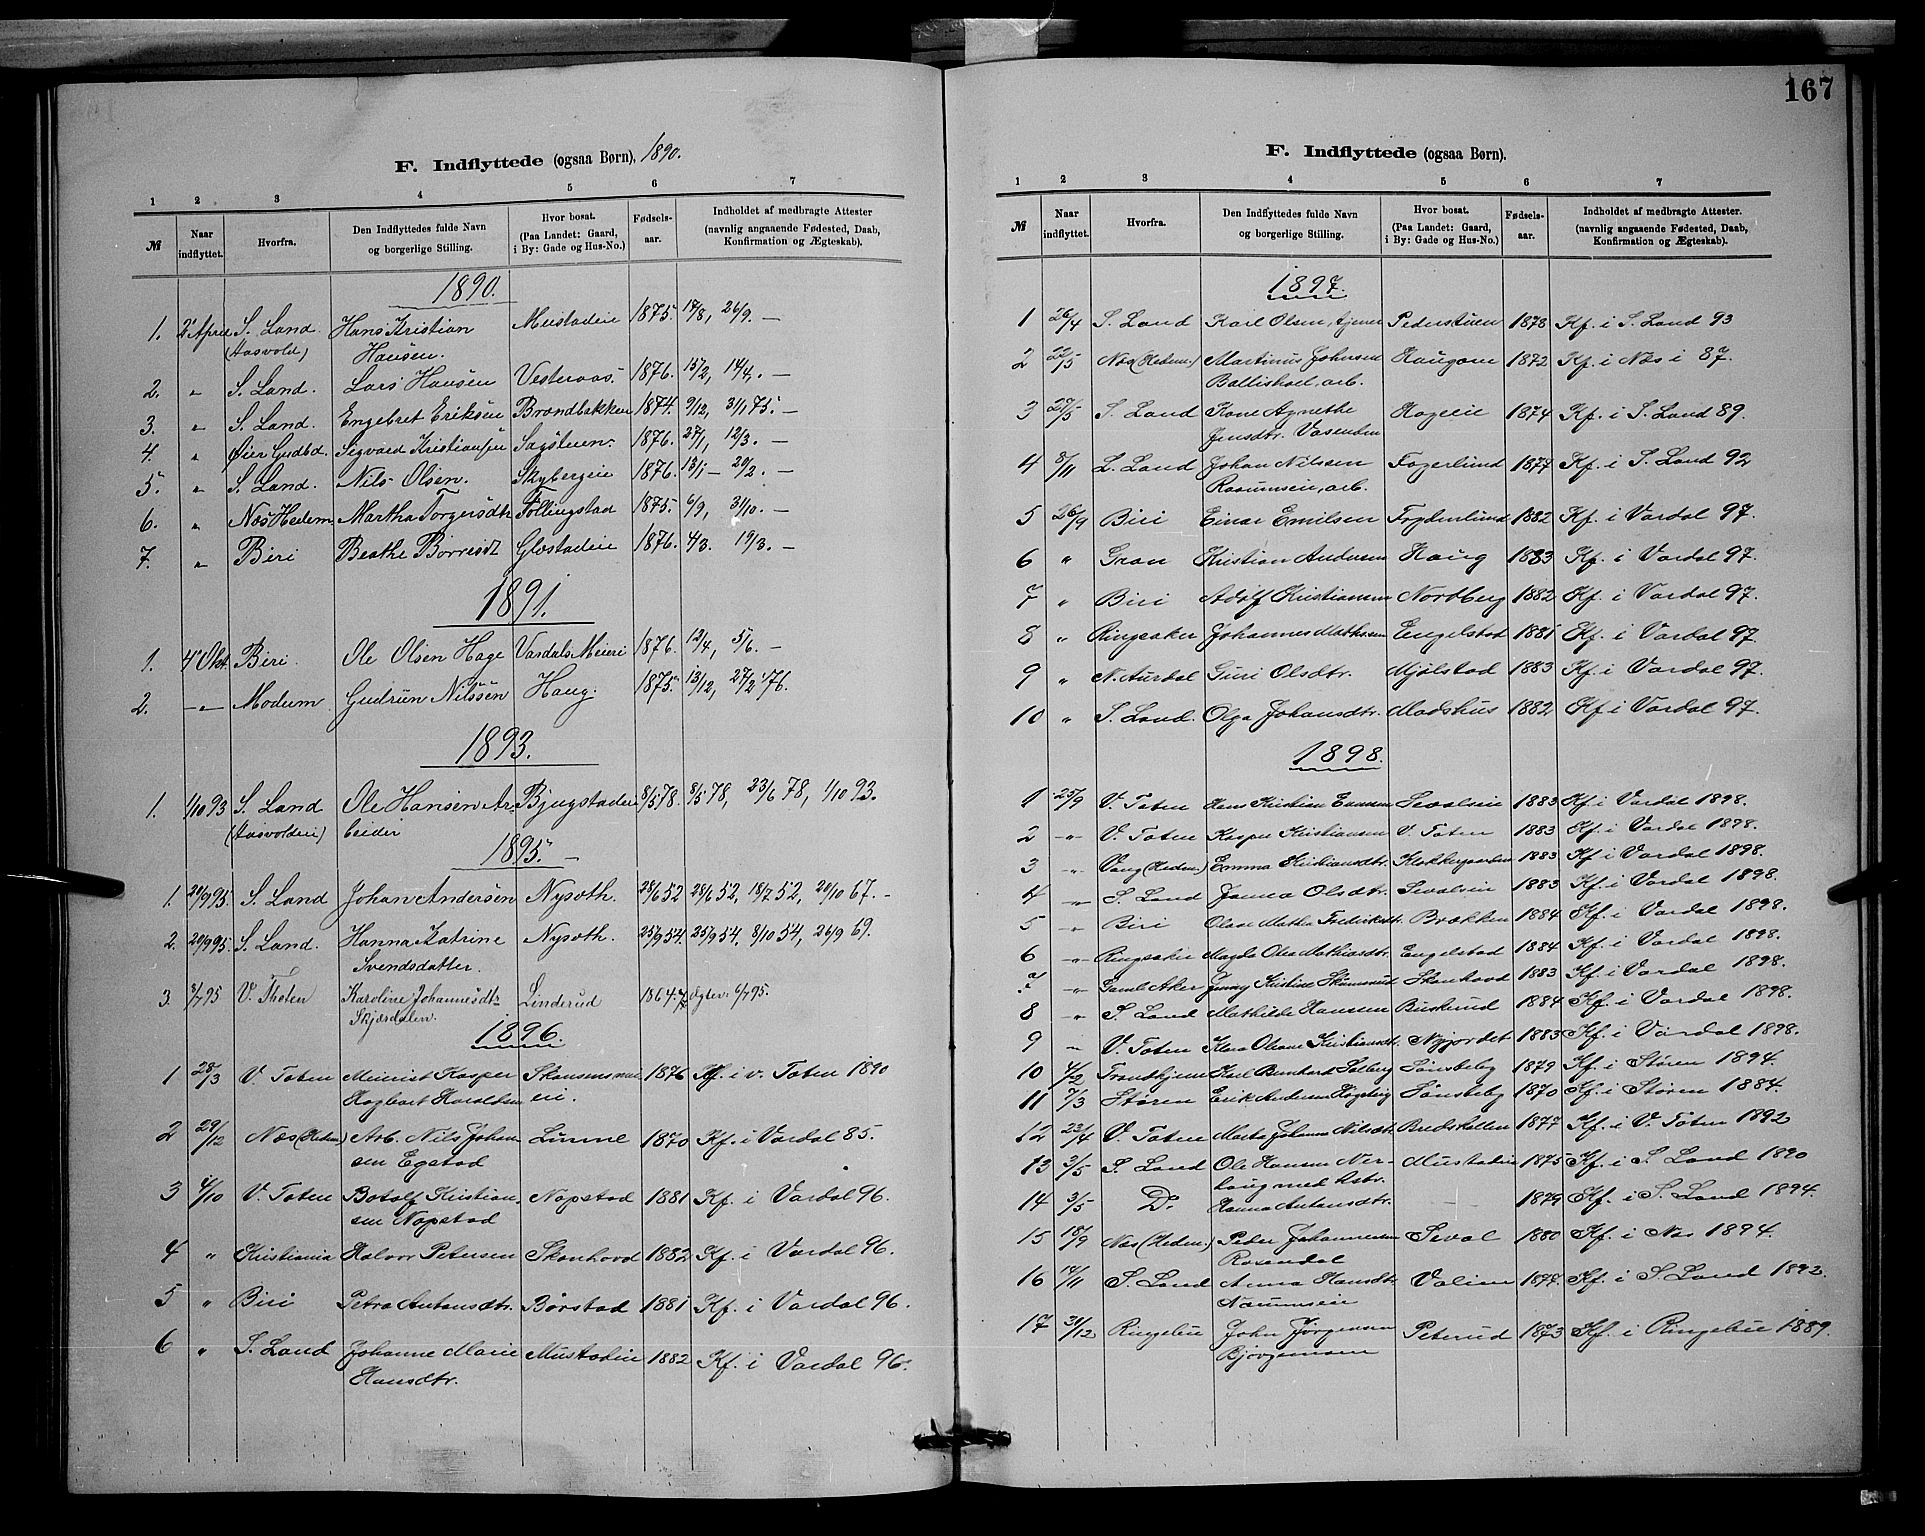 F. Indflyttede (ogsaa Børn), 1890.
1 2 3 4 5 6 7
№ Naar indflyttet. Hvorfra. Den Indflyttedes fulde Navn og borgerlige Stilling. Hvor bosat. (Paa Landet: Gaard, i By: Gade og Hus-No.) Fødselsaar. Indholdet af medbragte Attester (navnlig angaaende Fødested, Daab, Konfirmation og Ægteskab).
1890.
1. 2' April S. Land. Hans Kristian Mustadeie 1875. 17/8, 26/9. —
(Aasvold) Hansen.
2. " S. Land. Lars Hansen Vesteraas. 1876. 15/2, 14/4. —
3. " S. Land. Engebret Eriksen Brændbakken 1874. 9/12, 31/1 75. —
4. " Øier Gudbd. Segvard Kristiansen Sagstuen 1876. 27/1, 12/3. —
5. " S. Land. Nils Olsen. Skybergeie 1876. 13/1 — 20/2. —
6. " Næs Hedem. Martha Torgersdtr Føllingstad 1875. 6/9, 31/10. —
7. " Biri Beathe Børresdt Glæstadeie 1876. 4/3. 19/3. —
1891.
1. 4' Okt. Biri. Ole Olsen Hage Vardals Meieri 1876. 12/4, 5/6. —
2. —"— Modum Gudrun Nilssen Haug. 1875. 13/12, 27/2 76.
1893.
1. 1/10 93 S. Land Ole Hansen Ar- Bjugstadeie 8/5 78. 8/5 78, 23/6 78, 1/10 93.
(Aasvoldeie) beider
1895. —
1. 20/9 95. S. Land Johan Andersen Nysøth. 28/6 52 28/6 52, 18/7 52, 20/10 67. —
2. 20/9 95. S. Land. Hanna Katrine Nysøth. 25/9 54. 25/9 54, 8/10 54, 26/9 69.
Svendsdatter.
3. 3/7 95 V. Thoten Karoline Johannesdtr Linderud 1864. Ægtev. 6/7 95.
Skjærdalen.
1896.
1 28/3 V. Toten Meierist Kasper 1876 Kf. i v. Toten 1890
Hagbart Haraldsen eie.
2 29/12 Næs (Hedem) Arb. Nils Johan Lunne 1870 Kf. i Vardal 85.
sen Egstad
3 4/10 V. Toten Botolf Kristian Nøpstad 1881 Kf. i Vardal 96.
sen Nøpstad
4 " Kristiania Halvor Petersen Skonhovd 1882 Kf. i Vardal 96.
5 " Biri Petra Antonsdtr. Børstad 1881 Kf. i Vardal 96.
6 " S. Land Johanne Marie Mustadeie 1882 Kf. i Vardal 96.
Hansdtr.
167
F. Indflyttede (ogsaa Børn).
1 2 3 4 5 6 7
№ Naar indflyttet. Hvorfra. Den Indflyttedes fulde Navn og borgerlige Stilling. Hvor bosat. (Paa Landet: Gaard, i By: Gade og Hus-No.) Fødselsaar. Indholdet af medbragte Attester. (navnlig angaaende Fødested, Daab, Konfirmation og Ægteskab).
1897.
1 26/4 S. Land Karl Olsen, tjener Pederstuen 1878 Kf. i S. Land 93
2 22/5 Næs (Hedem.) Martinus Johnsen Haugom 1872 Kf. i Næs i 87.
Ballishoel, arb.
3 29/5 S. Land Kone Agnethe Hageeie 1874 Kf. i S. Land 89.
Jensdtr. Vasenden
4 8/11 L. Land Johan Nilssen Fagerlund 1877 Kf. i S. Land 92
arb.
5 26/9 Biri Einar Emilsen Frydenlund 1882 Kf. i Vardal 97.
6 " Gran Kristian Andersen Haug 1883 Kf. i Vardal 97.
7 " Biri Adolf Kristiansen Nordberg 1882 Kf. i Vardal 97.
8 " Ringsaker Johannes Mathisen Engelstad 1881 Kf. i Vardal 97
9 " N. Aurdal Guri Olsdtr. Mjølstad 1883 Kf. i Vardal 97.
10 " S. Land. Olga Johansdtr. Madshus 1882 Kf i Vardal 97.
1898.
1 25/9 V. Toten Hans Kristian Sevaleie 1883 Kf i Vardal 1898.
2 —"— V. Toten Kasper Kristiansen V. Toten 1883 Kf. i Vardal 1898.
3 —"— Vang (Hedem.) Emma Kristiansdtr. Klokkergaarden 1883 Kf i Vardal 1898.
4 —"— S. Land Janna Olsdtr. Sevaleie 1883 Kf. i Vardal 1898.
5 —"— Biri Oline Mathea Fredriksdtr. Brækken 1884 Kf. i Vardal 1898.
6 —"— Ringsaker Magda Olea Mathiasdtr. Engelstad 1884 Kf. i Vardal 1898.
7 —"— Gamle Aker Jenny Kristine Skonhovd 1883 Kf. i Vardal 1898.
8 —"— S. Land Mathilde Hanssen Buskerud 1884 Kf. i Vardal 1898.
9 — V. Toten Klara Oleane Kristiansdtr. Nyjordet 1883 Kf. i Vardal 1898.
10 4/2 Trondhjem Karl Bernhard Solberg Sønsteby 1879 Kf. i Støren 1894.
11 7/3 Støren Erik Andersen Sønsteby 1870 Kf. i Støren 1884.
12 22/4 V. Toten Marte Johanne Nilsdtr. Bredskallen 1877 Kf. i V. Toten 1892
13 3/5 S. Land Ole Hansen Ner- Mustadeie 1875 Kf. i S. Land 1890
haug med Hstr.
14 3/5 Do. Hanna Antonsdtr. — 1879 Kf. i S. Land 1894.
15 18/9 Næs (Hedem.) Peder Johannesen Seval 1880 Kf. i Næs 1894.
Rosendal
16 14/11 S. Land Anna Hansdtr. 1877. Kf. i S. Land 1892.
Narumseie
17 31/12 Ringebu John Jørgensen Peterud 1873 Kf. i Ringebu 1889.
Bjørgemoen